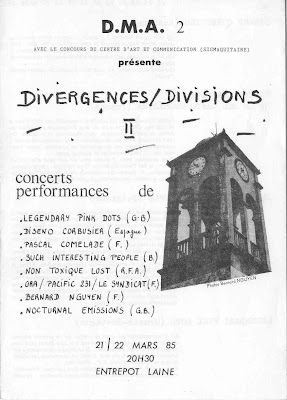 D.M.A. 2
AVEC LE CONCOURS DU CENTRE D'ART ET COMMUNICATION (SIGMAQUITAINE)
présente
DIVERGENCES/DIVISIONS
II
concerts
performances de
.LEGENDARY PINK DOTS (G.B)
.DISENO CORBUSIER (Espagne)
.PASCAL COMELADE (F.)
.SUCH INTERESTING PEOPLE (B.)
.NON TOXIQUE LOST (R.F.A.)
.ORA/ PACIFIC 231/ LE SYNDICAT (F.)
.BERNARD NGUYEN (F.)
.NOCTURNAL EMISSIONS (G.B.)
Photos Bernard NGUYEN
21/ 22 MARS 85
20H30
ENTREPOT LAINE